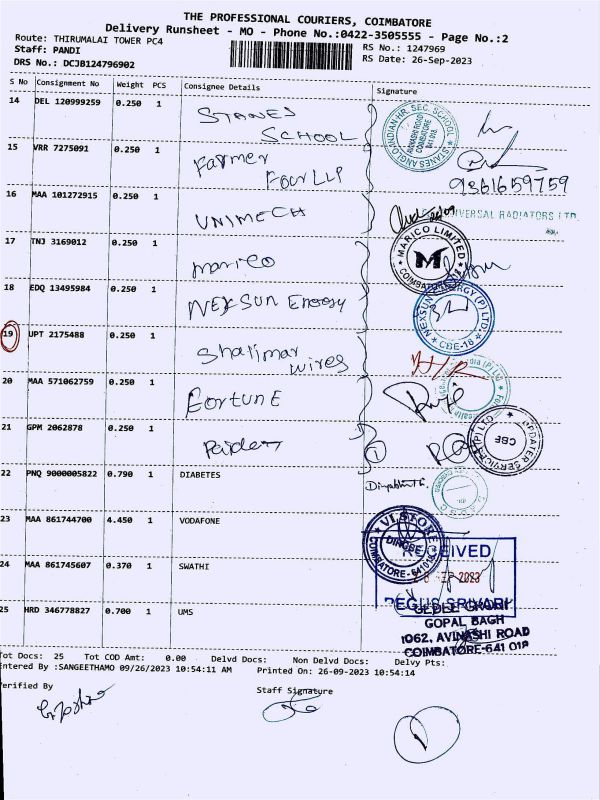 THE PROFESSIONAL COURIERS, COIMBATORE
Delivery Runsheet - MO - Phone No.:0422-3505555 - Page No.:2
Route: THIRUMALAI TOWER PC4
RS No.: 1247969
Staff: PANDI
RS Date: 26-Sep-2023
DRS No.: DCJB124796902
S No Consignment No Weight PCS Consignee Details Signature
14 DEL 120999259 0.250 1 STANES SCHOOL
15 VRR 7275091 0.250 1 Farmer Four LLP
9361659759
16 MAA 101272915 0.250 1 UNIMECH
UNIVERSAL RADIATORS LTD.
17 TNJ 3169012 0.250 1 marico
MARICO LIMITED
COIMBATORE
M
18 EDQ 13495984 0.250 1 NEXSUN Energy
NEXSUN ENERGY (P) LTD.
CBE-18
19 UPT 2175488 0.250 1 Shalimar wires
20 MAA 571062759 0.250 1 FORTUNE
21 GPM 2062878 0.250 1
1
UPDATER SERVICES (P) LTD
CBE
22 PNQ 9000005822 0.790 1 DIABETES
23 MAA 861744700 4.450 1 VODAFONE
VI STORE
COIMBATORE-641018
24 MAA 861745607 0.370 1 SWATHI
RECEIVED
26 SEP 2023
REGUS SRIVARI
25 HRD 346778827 0.700 1 UMS
GEDEE GHORI
GOPAL BAGH
1062, AVINASHI ROAD
COIMBATORE-641 018
Tot Docs: 25 Tot COD Amt: 0.00 Delvd Docs: Non Delvd Docs: Delvy Pts:
Entered By :SANGEETHAMO 09/26/2023 10:54:11 AM Printed On: 26-09-2023 10:54:14
Verified By Staff Signature